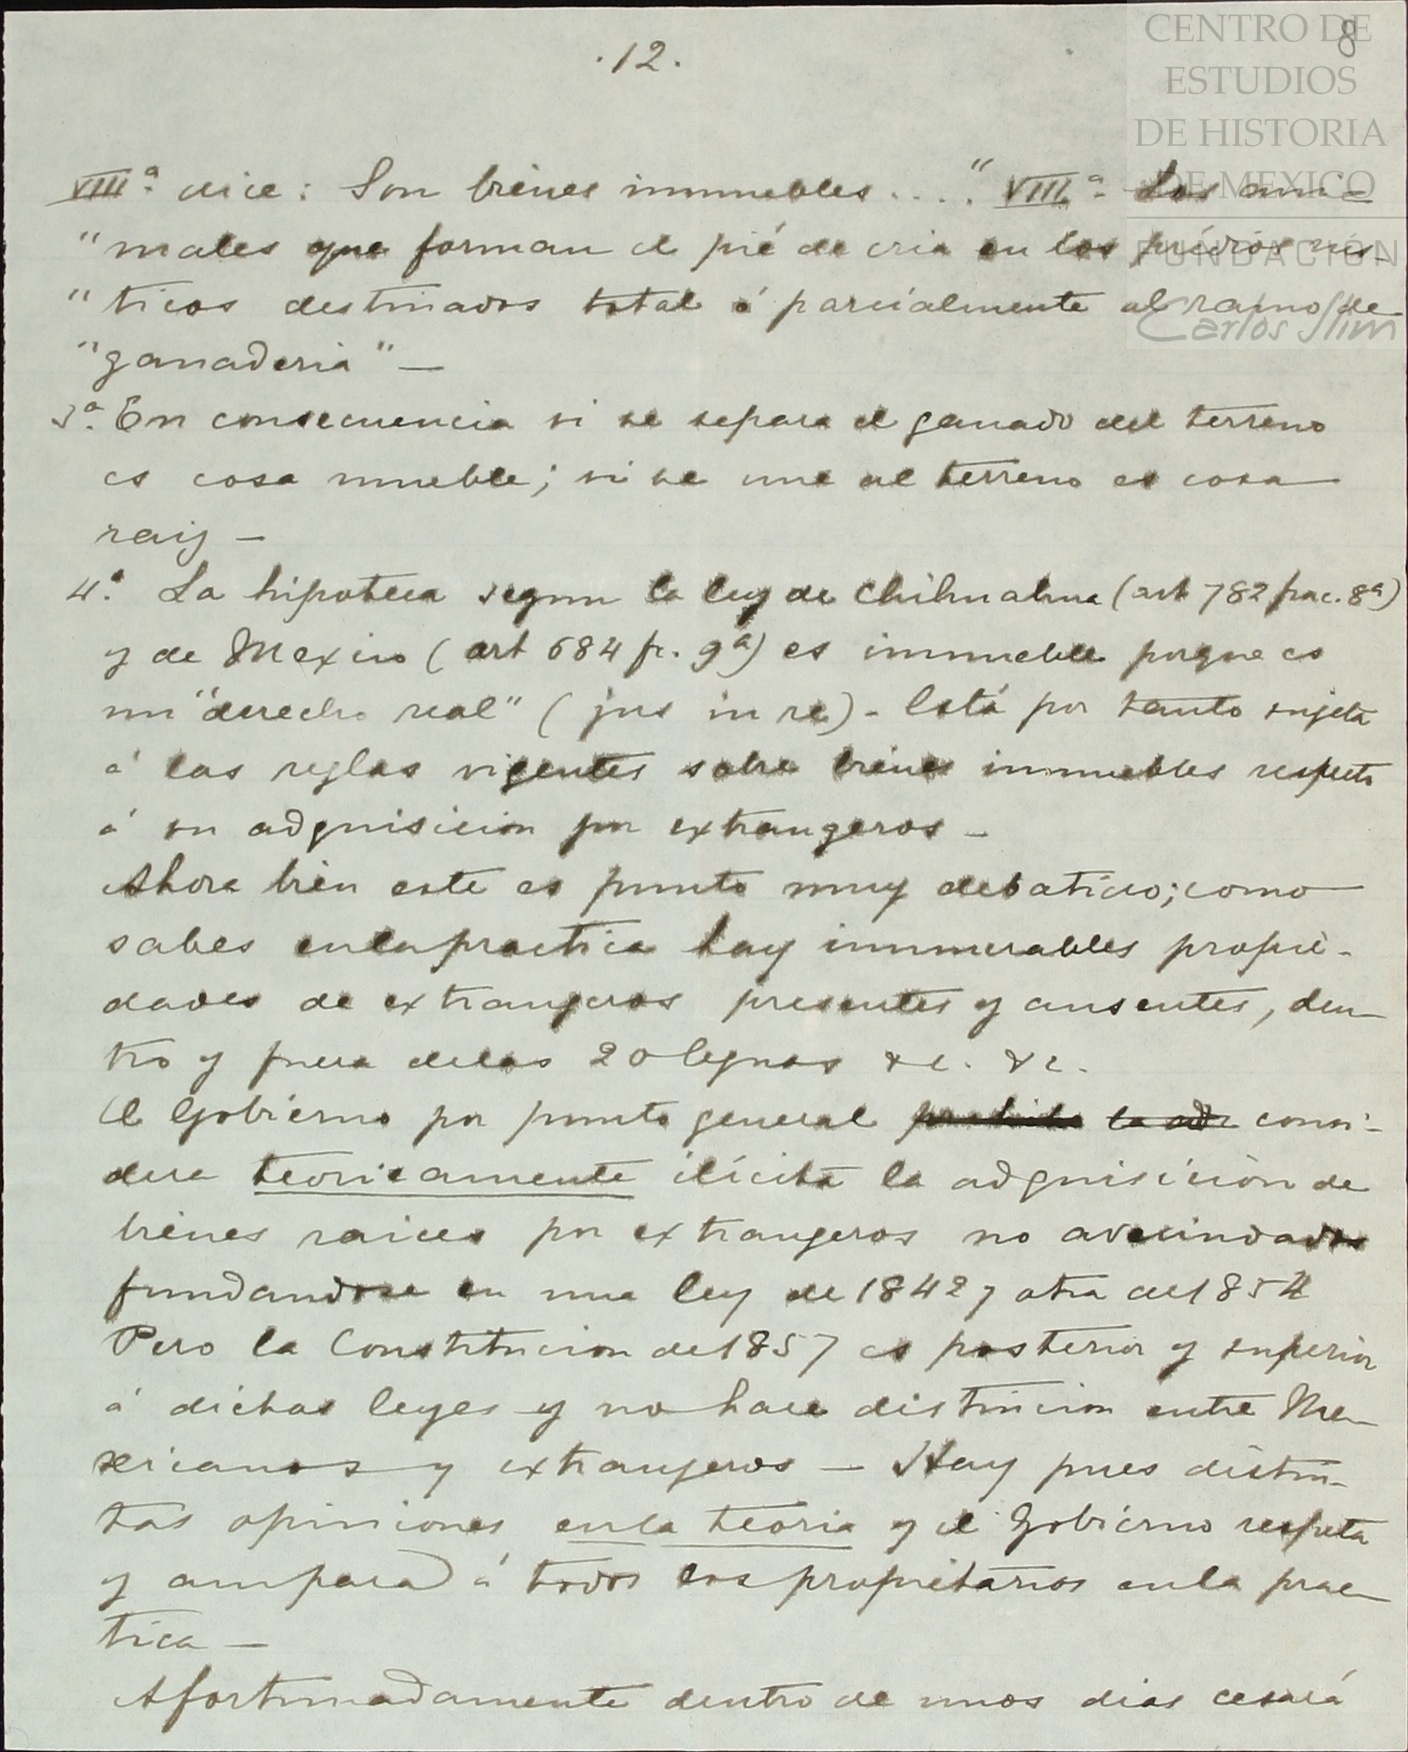 .12.
8
CENTRO DE
ESTUDIOS
DE HISTORIA
DE MEXICO
FUNDACIÓN
Carlos Slim
VIIIª dice: Son bienes inmuebles...." VIIIª Los ani-
"males que forman el pié de cria en los predios rús-
"ticos destinados total ó parcialmente al ramo de
"ganaderia" —
3ª. En consecuencia si se separa el ganado del terreno
es cosa mueble; si se une al terreno es cosa
raiz —
4ª. La hipoteca segun la ley de Chihuahua (art 782 frac. 8ª)
y de Mexico (art 684 fr. 9ª) es inmueble porque es
un "derecho real" (jus in re) - Está por tanto sujeta
á las reglas vigentes sobre bienes inmuebles respecto
á su adquisicion por extrangeros —
Ahora bien este es punto muy debatido; como
sabes en la practica hay innumerables propie-
dades de extrangeros presentes y ausentes, den-
tro y fuera de las 20 leguas &c. &c.
El Gobierno por punto general prohibe la ad consi-
dera teoricamente ilícita la adquisicion de
bienes raices por extrangeros no avecindados
fundandose en una ley de 1842 y otra de 1854
Pero la Constitucion de 1857 es posterior y superior
á dichas leyes y no hace distincion entre Me-
xicanos y extrangeros — Hay pues distin-
tas opiniones en la teoria y el Gobierno respeta
y ampara á todos los propietarios en la prac-
tica —
Afortunadamente dentro de unos dias cesará